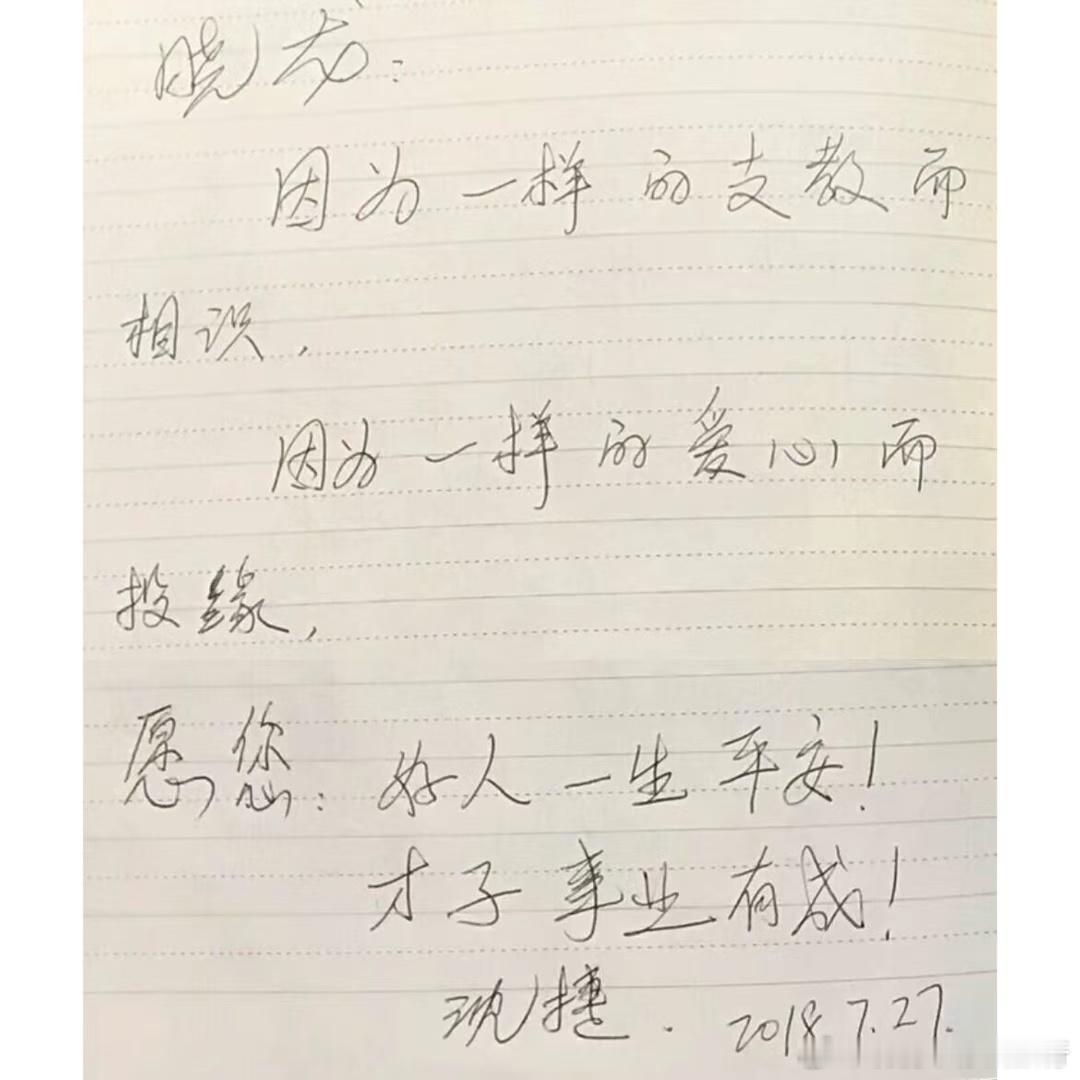 晓龙：
因为一样的支教而
相识，
因为一样的爱心而
投缘，
愿您：好人一生平安！
才子事业有成！
沈捷．2018.7.27.